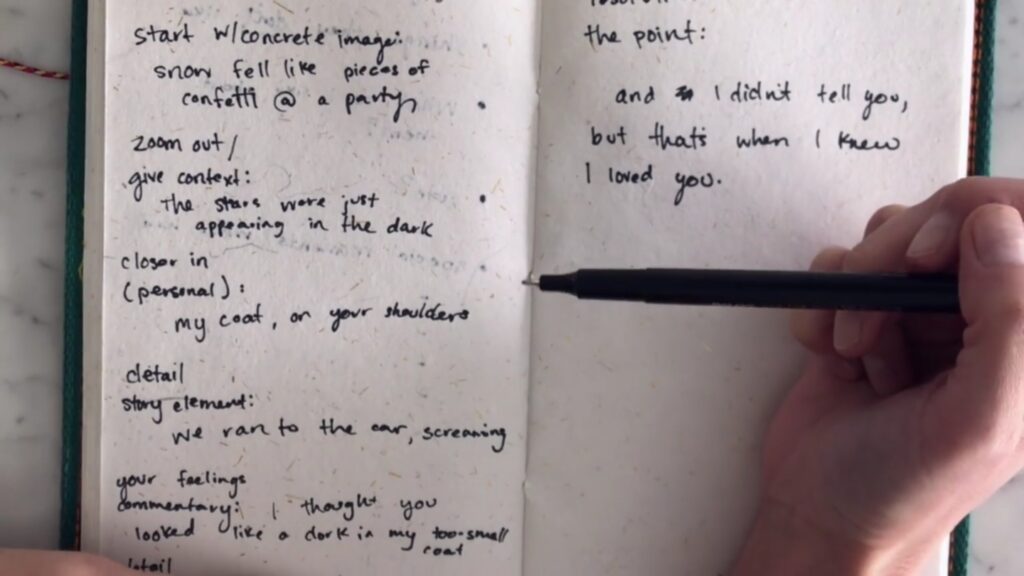 start w/concrete image:
snow fell like pieces of
confetti @ a party,
zoom out/
give context:
the stars were just
appearing in the dark
closer in
(personal):
my coat, on your shoulders
detail
story element:
we ran to the car, screaming
your feelings
commentary: I thought you
looked like a dork in my too-small
coat
the point:
and I didn't tell you,
but that's when I knew
I loved you.